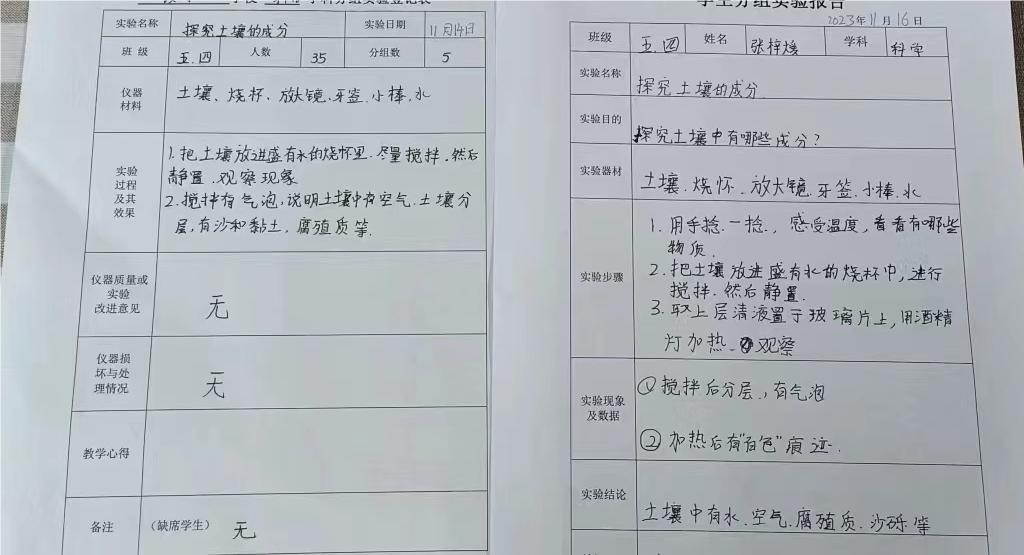 学科分组实验登记表
实验名称 探究土壤的成分 实验日期 11月14日
班级 五.四 人数 35 分组数 5
仪器
材料
土壤、烧杯、放大镜、牙签、小棒、水
实验
过程
及其
效果
1.把土壤放进盛有水的烧怀里.尽量搅拌.然后
静置.观察现象
2.搅拌有气泡,说明土壤中有空气.土壤分
层,有沙和黏土.腐殖质等.
仪器质量或
实验
改进意见
无
仪器损
坏与处
理情况
无
教学心得
备注 (缺席学生) 无
学生分组实验报告
2023年11月16日
班级 五.四 姓名 学科 科学
实验名称 探究土壤的成分
实验目的 探究土壤中有哪些成分?
实验器材 土壤.烧怀.放大镜.牙签.小棒.水
实验步骤
1.用手捻.一捻.,感受温度,看看有哪些
物质.
2.把土壤放进盛有水的烧杯中,进行
搅拌.然后静置.
3.取上层清液置于玻璃片上,用酒精
灯加热.观察
实验现象
及数据
①搅拌后分层.,有气泡
②加热后有"白色"痕迹.
实验结论 土壤中有水.空气.腐殖质.沙砾等